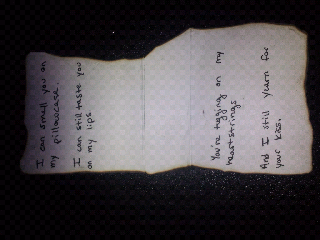 I can smell you on
my pillowcase.
I can still taste you
on my lips
You're tugging on my
heartstrings
And I still yearn for
your kiss.